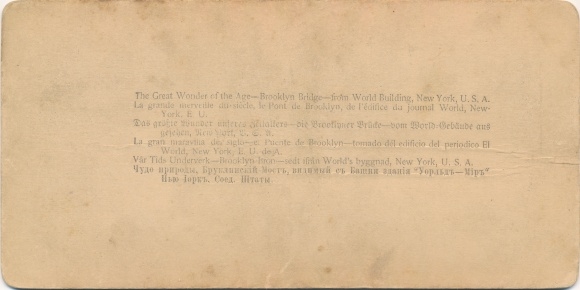 The Great Wonder of the Age—Brooklyn Bridge—from World Building, New York, U. S. A.
La grande merveille du siècle, le Pont de Brooklyn, de l'édifice du journal World, New-
York, E. U.
Das größte Wunder unseres Zeitalters—die Brooklyner Brücke—vom World-Gebäude aus
gesehen, New York, V. S. A.
La gran maravilla del siglo—el Puente de Brooklyn—tomado del edificio del periodico El
World, New York, E. U. de A.
Vår Tids Underverk—Brooklyn-bron—sedt ifrån World's byggnad, New York, U. S. A.
Чудо природы, Бруклинскій Мостъ, видимый съ Башни зданія "Уорльдъ—Міръ"
Нью Іоркъ. Соед. Штаты.